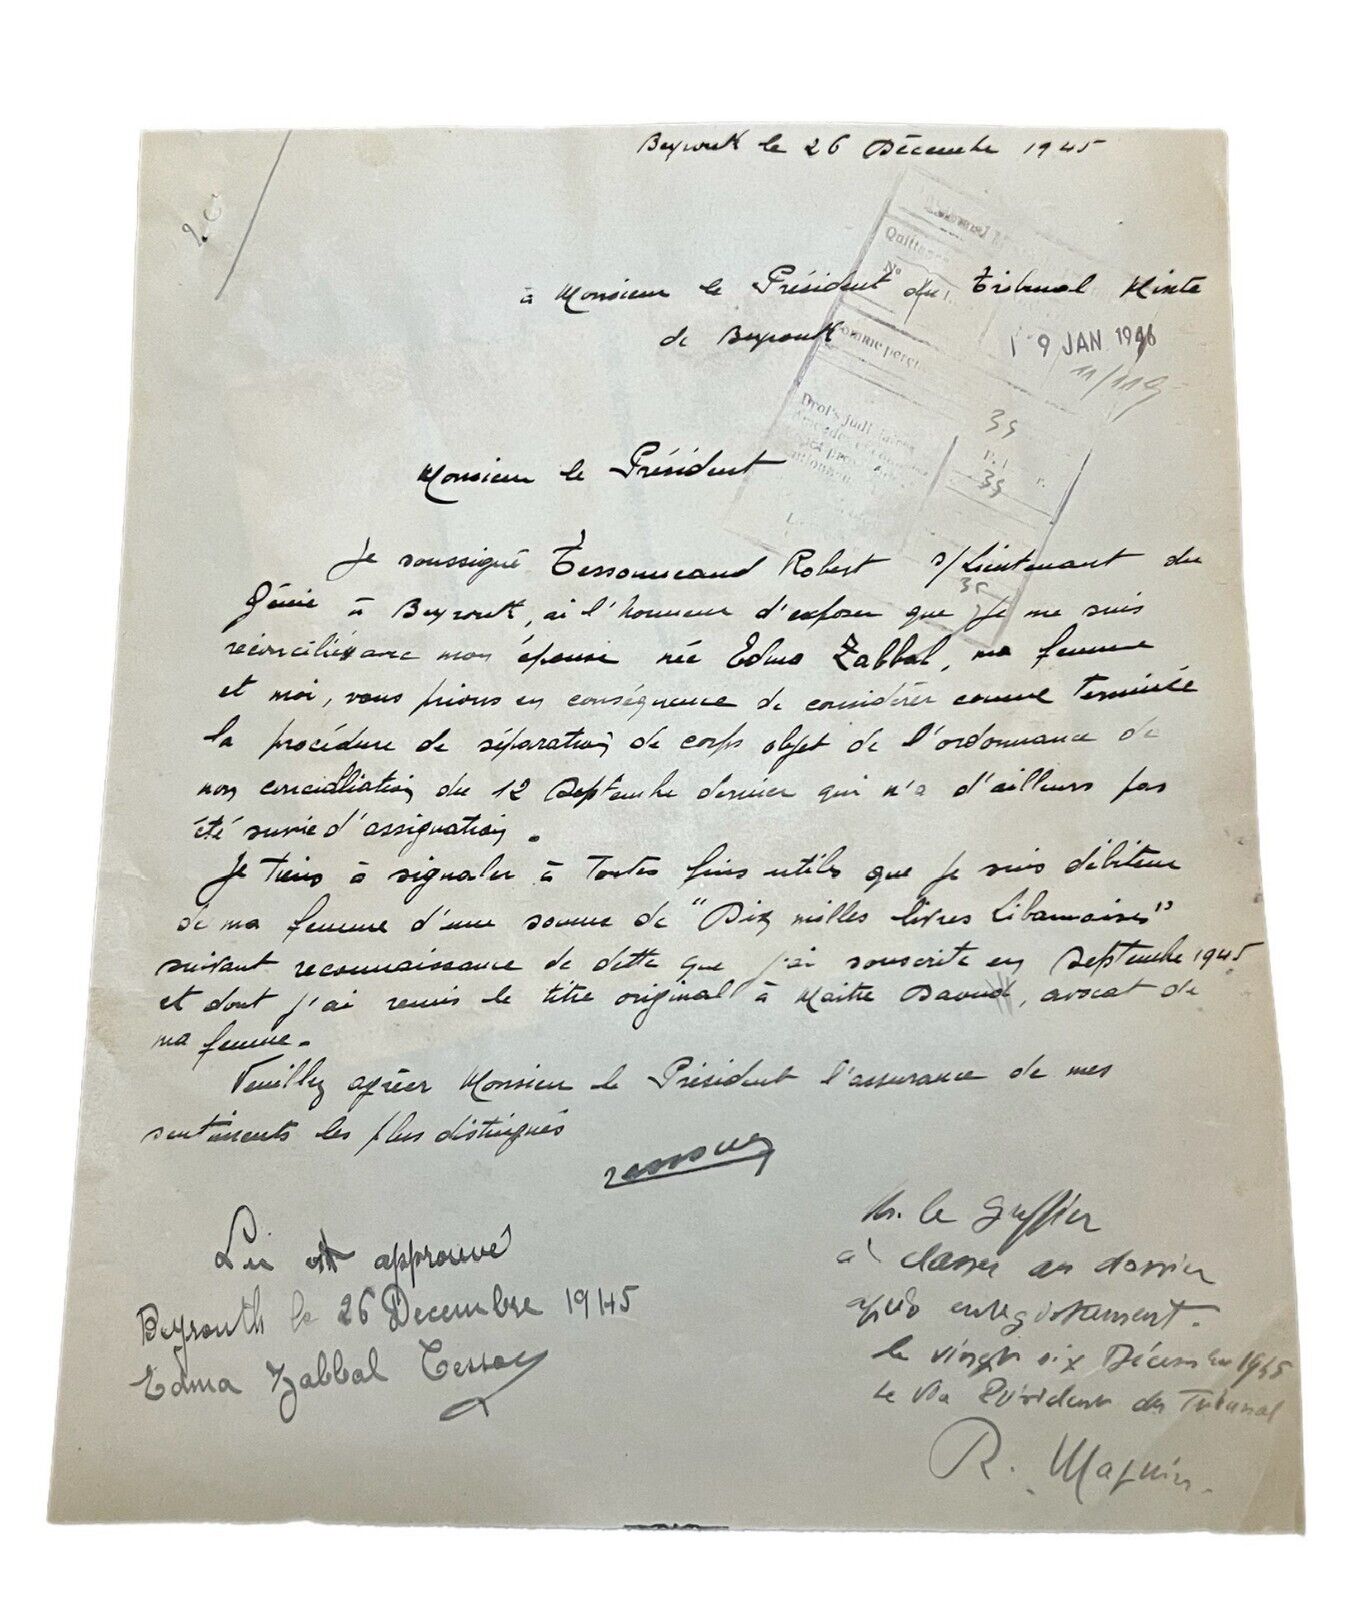 Beyrouth le 26 Décembre 1945
à Monsieur le Président du Tribunal Mixte
de Beyrouth
Quittance
No
Somme perçue
19 JAN 1946
11/119
Droits judiciaires
35
35
35
Monsieur le Président
Je soussigné Tessonneaud Robert s/Lieutenant du
Génie à Beyrouth, ai l'honneur d'exposer que je me suis
réconcilié avec mon épouse née Edma Zabbal, ma femme
et moi, vous prions en conséquence de considérer comme terminée
la procédure de séparation de corps objet de l'ordonnance de
non conciliation du 12 Septembre dernier qui n'a d'ailleurs pas
été suivie d'assignation.
Je tiens à signaler à toutes fins utiles que je suis débiteur
de ma femme d'une somme de "Dix milles livres Libannaises"
suivant reconnaissance de dette que j'ai souscrite en Septembre 1945
et dont j'ai remis le titre original à Maitre Daoud, avocat de
ma femme.
Veuillez agréer Monsieur le Président l'assurance de mes
sentiments les plus distingués
Lu et approuvé
Beyrouth le 26 Decembre 1945
Edma Zabbal
M. le Greffier
à classer au dossier
après enregistrement.
le vingt six Décembre 1945
Le Président du Tribunal
R.